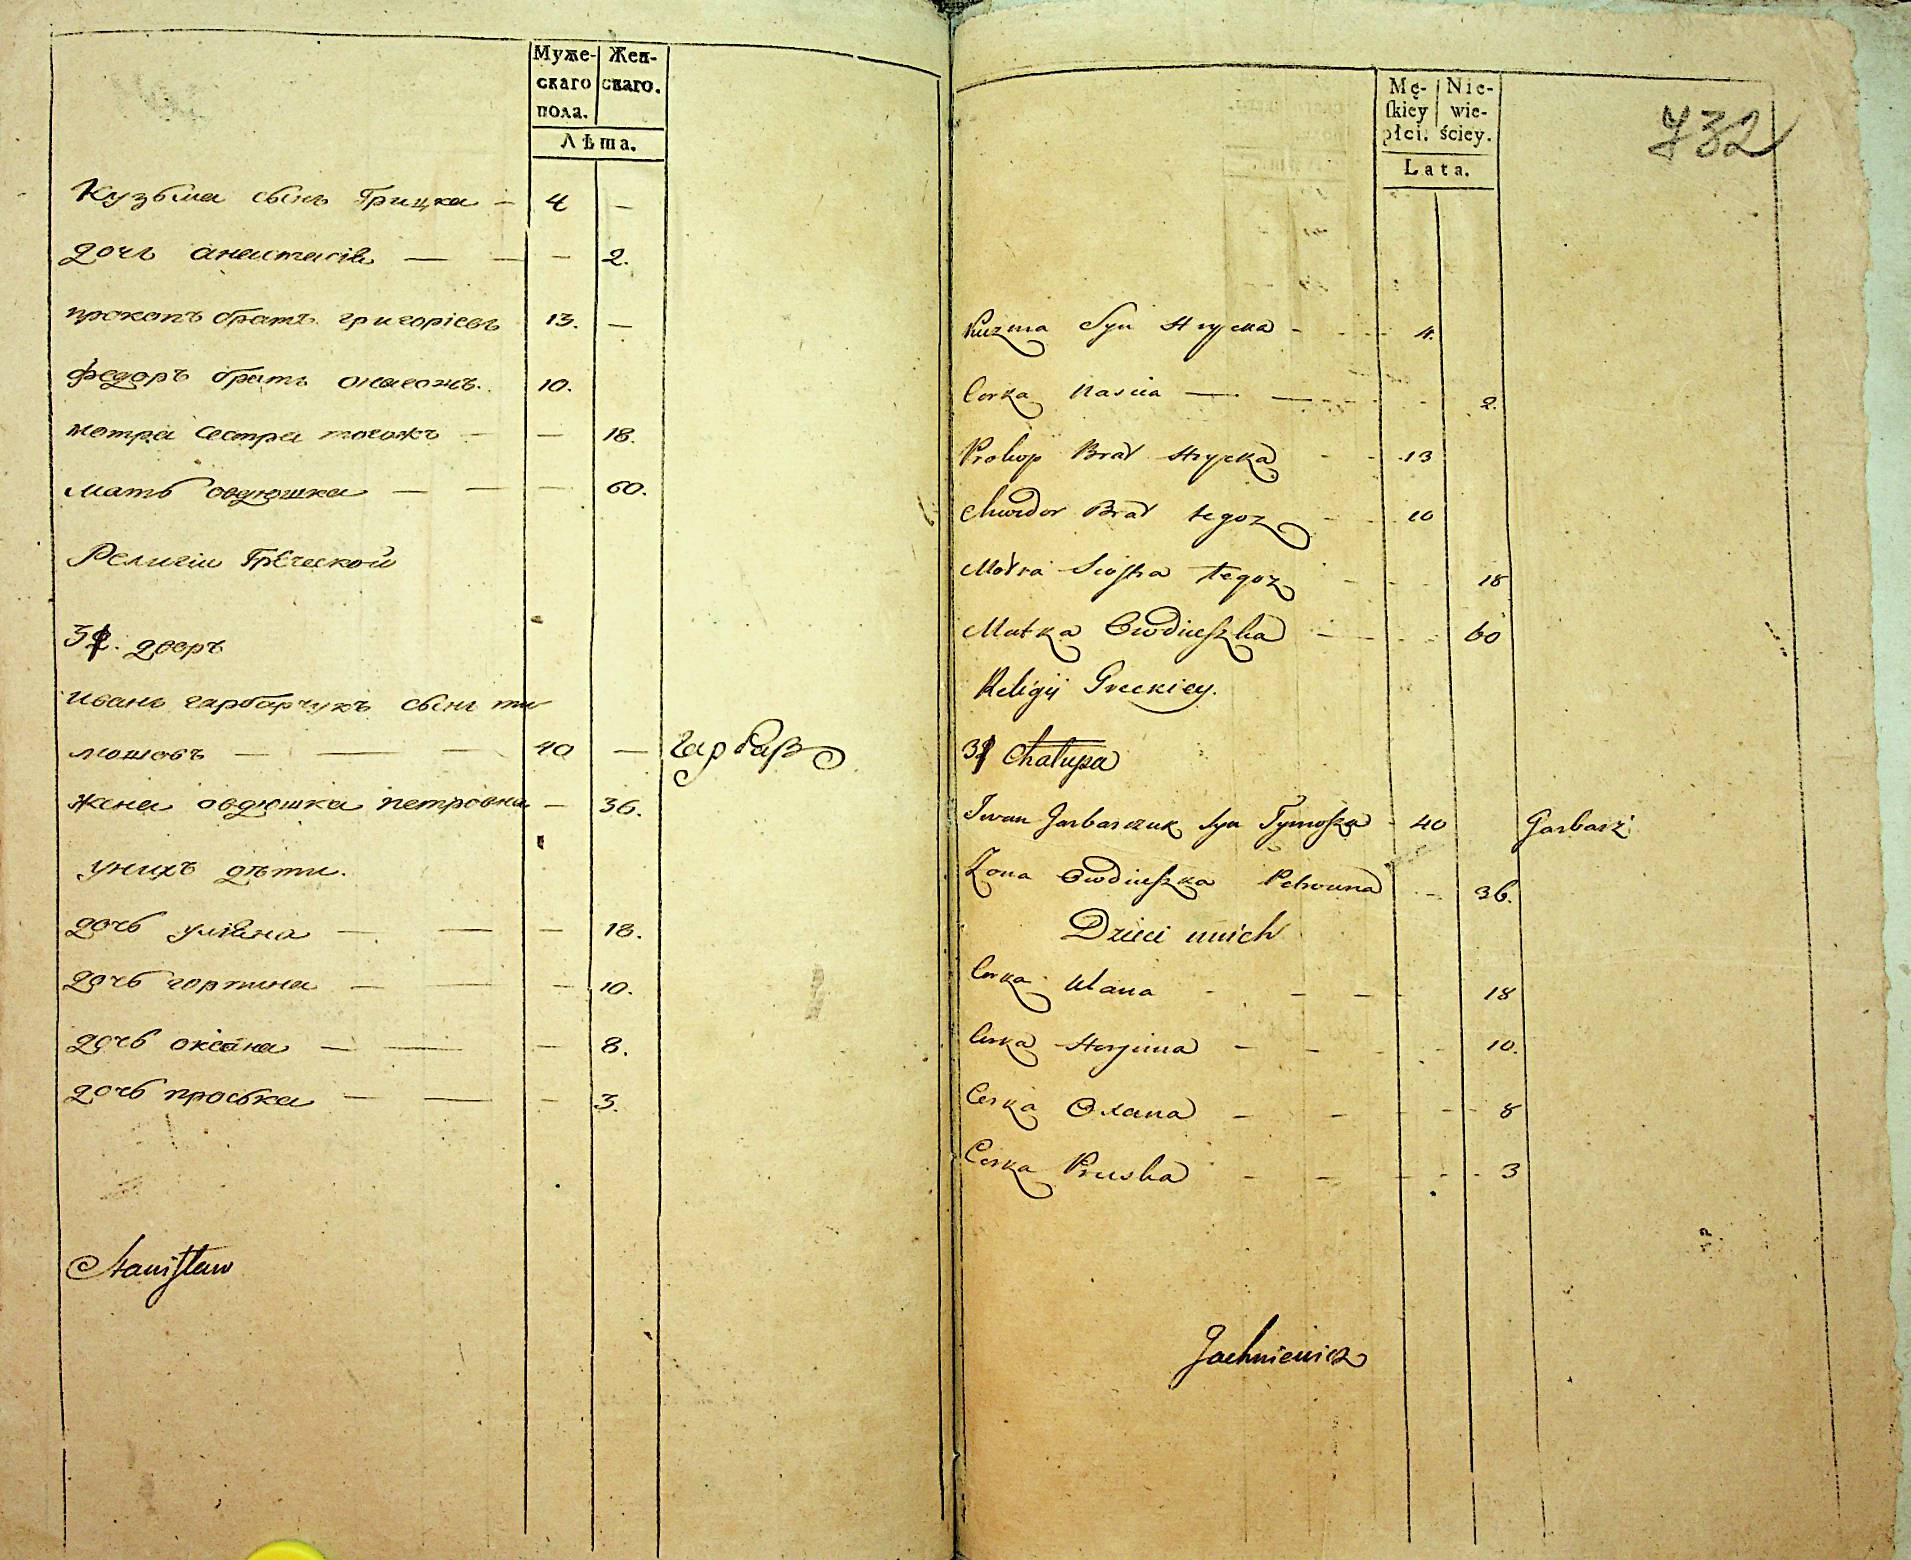 Муже- Жен-
скаго скаго.
пола.
Лѣта.
Кузьма сынъ Грицка - 4 —
дочь анастасія — — — 2.
прокопъ братъ григоріевъ 13. —
федоръ братъ онагожъ. 10.
мотра сестра тогожъ — — 18.
мать овдюшка — — — 60.
Религіи Греческой
дворъ
иванъ гарбарчукъ сынъ ти
мошовъ — — — 40 — гарбаръ
жена овдюшка петровна — 36.
унихъ дѣти.
дочь уліана — — — 18.
дочь горпина — — — 10.
дочь оксана — — — 8.
дочь проська — — — 3.
Stanisław
Mę- Nie-
skiey wie-
płci. ściey.
Lata.
732
Kuzma Syn Hrycka - - - 4.
Corka Nascia — — - - 2.
Prokop Brat Hrycka - - 13
Chwedor Brat tegoz - - 10
Motra Siostra tegoz - - - 18
Matka Owdiuszka - - - 60
Religij Greckiey.
Chałupa
Iwan Garbarczuk Syn Tymosza - 40 Garbarz
Zona Owdiuszka Petrowna - 36.
Dzieci unich
Corka Ulana - - - - 18
Corka Horpina - - - - 10.
Corka Oxana - - - - 8
Corka Pruska - - - - 3
Jachniewicz